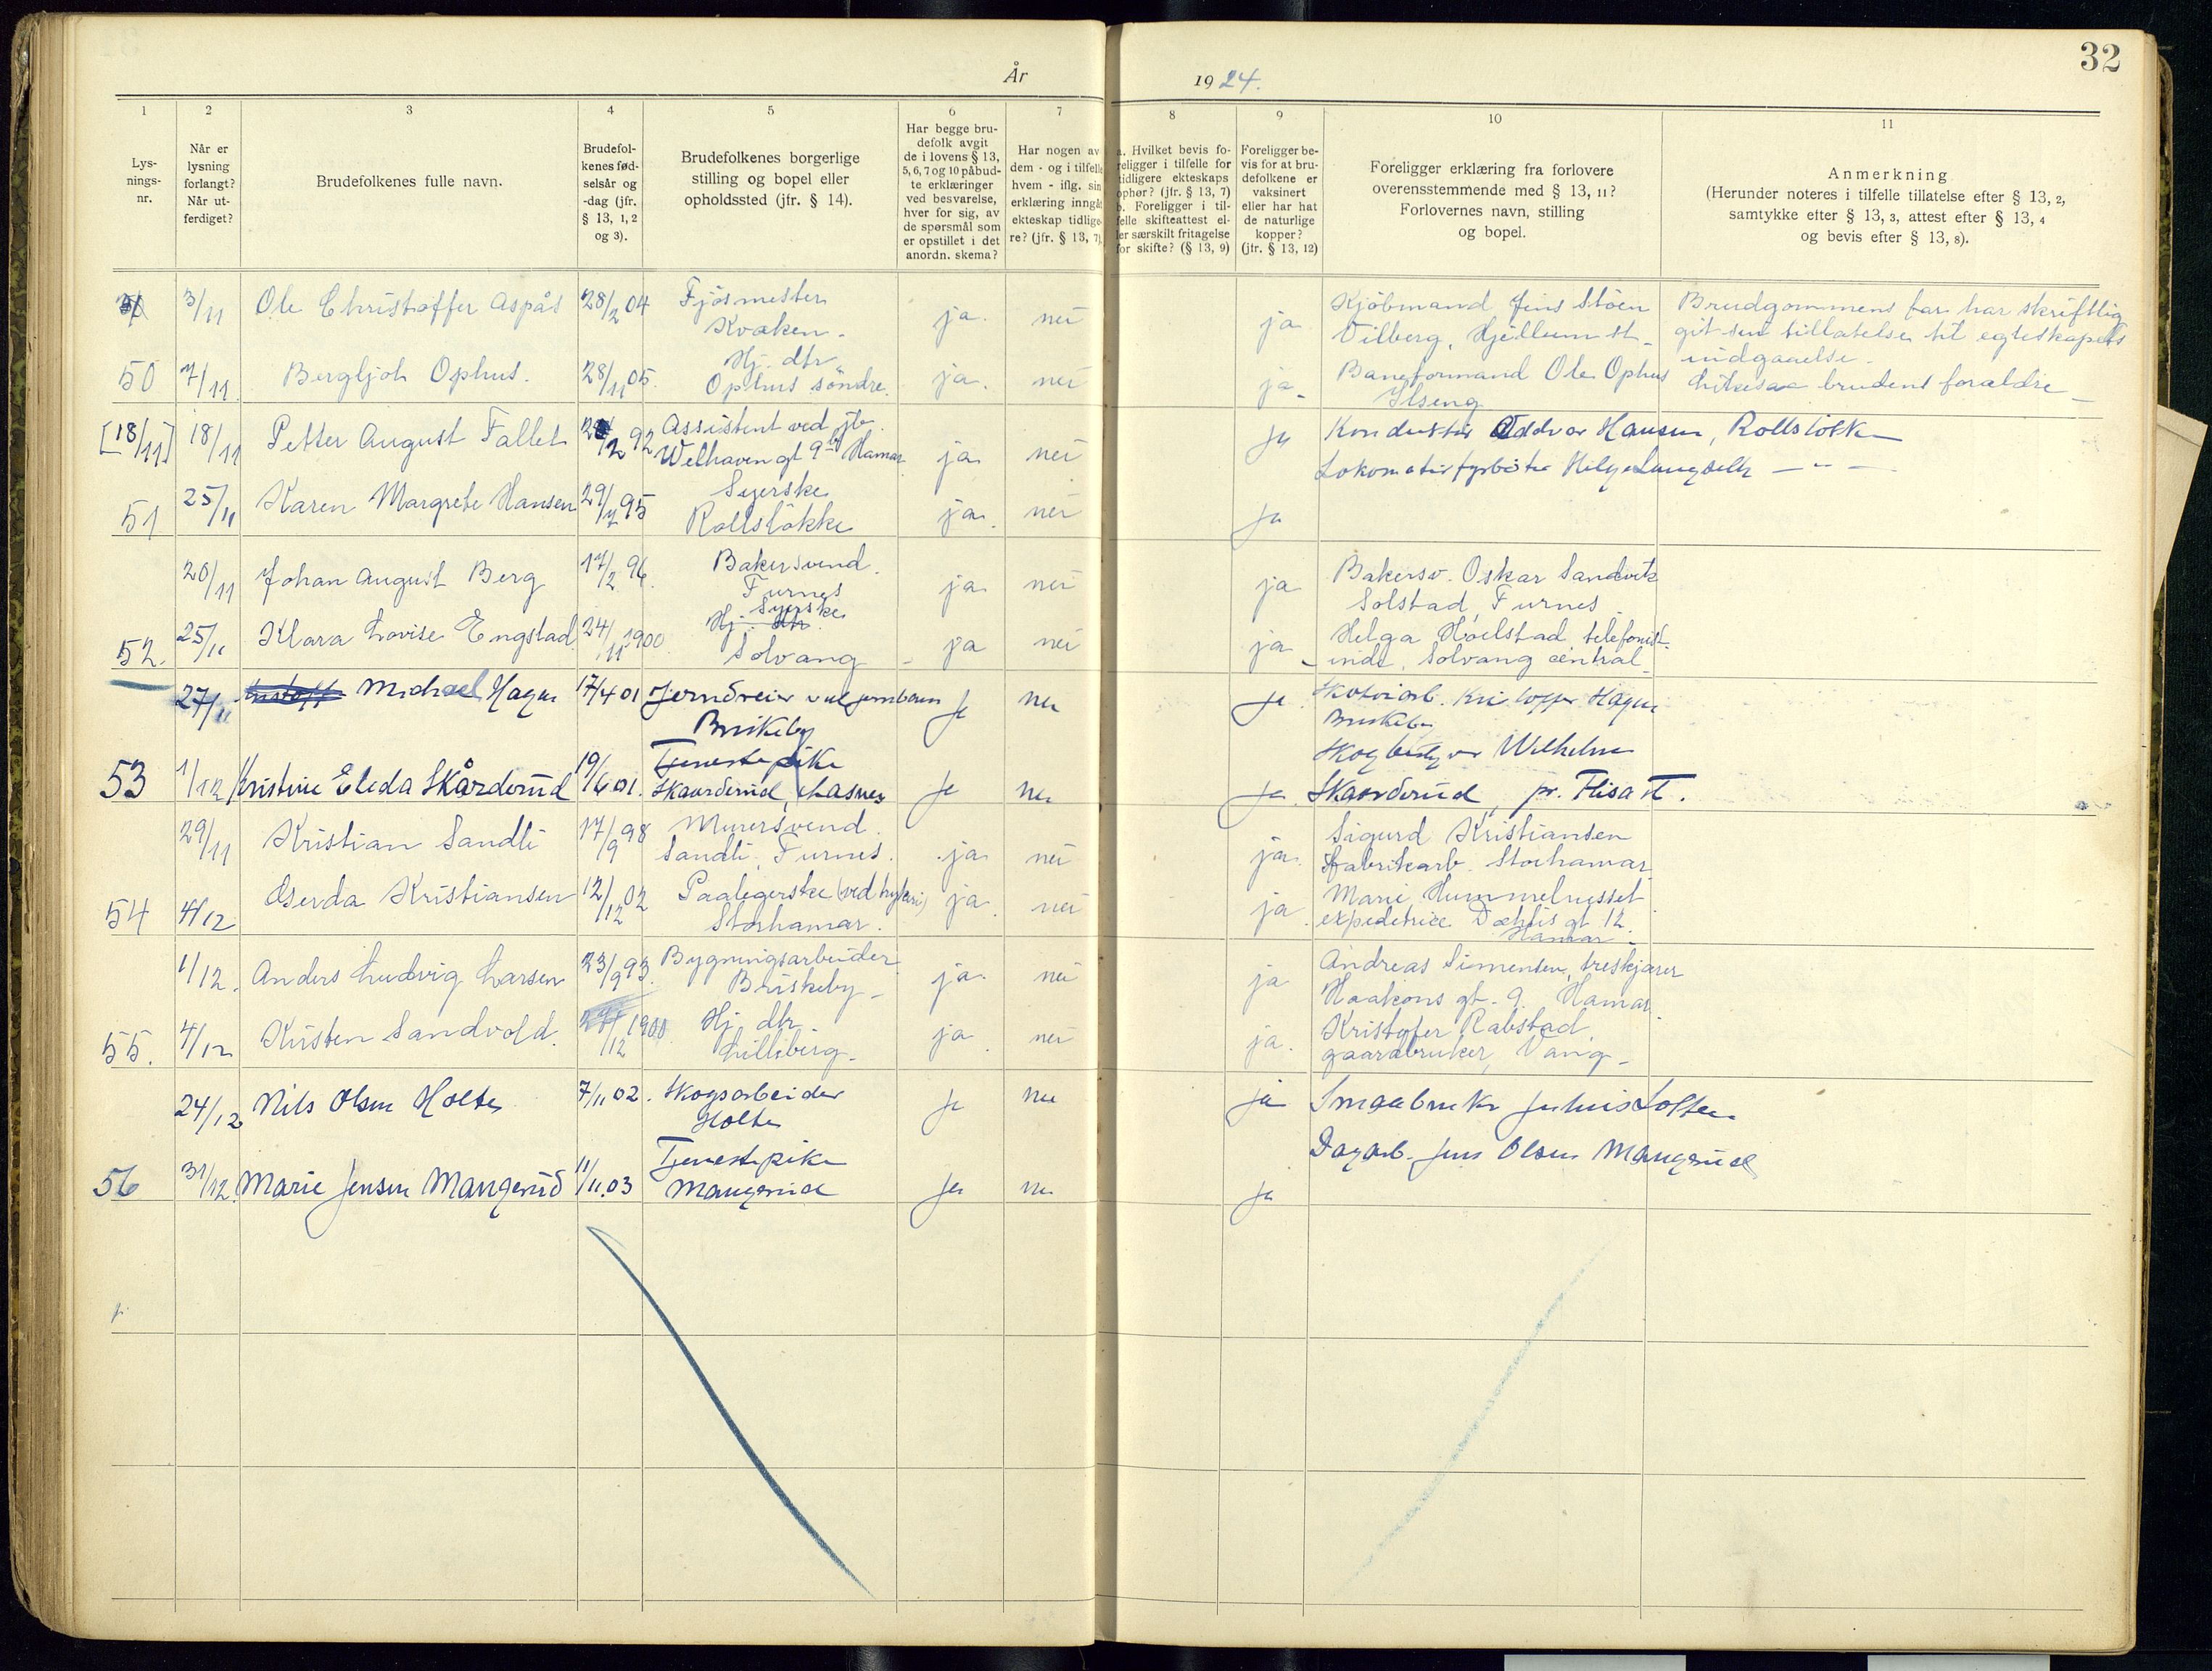 32
År 1924.
1 2 3 4 5 6 7 8 9 10 11
Lys-
nings-
nr.
Når er
lysning
forlangt?
Når ut-
ferdiget?
Brudefolkenes fulle navn.
Brudefol-
kenes fød-
selsår og
-dag (jfr.
§ 13, 1, 2
og 3).
Brudefolkenes borgerlige
stilling og bopel eller
opholdssted (jfr. § 14).
Har begge bru-
defolk avgit
de i lovens § 13,
5, 6, 7 og 10 påbud-
te erklæringer
ved besvarelse,
hver for sig, av
de spørsmål som
er opstillet i det
anordn. skema?
Har nogen av
dem - og i tilfelle
hvem - iflg. sin
erklæring inngåt
ekteskap tidlige-
re? (jfr. § 13, 7).
a. Hvilket bevis fo-
religger i tilfelle for
tidligere ekteskaps
ophør? (jfr. § 13, 7)
b. Foreligger i til-
felle skifteattest el-
ler særskilt fritagelse
for skifte? (§ 13, 9)
Foreligger be-
vis for at bru-
defolkene er
vaksinert
eller har hat
de naturlige
kopper?
(jfr. § 13, 12)
Foreligger erklæring fra forlovere
overensstemmende med § 13, 11?
Forlovernes navn, stilling
og bopel.
Anmerkning
(Herunder noteres i tilfelle tillatelse efter § 13, 2,
samtykke efter § 13, 3, attest efter § 13, 4
og bevis efter § 13, 8).
3/11 Ole Christoffer Aspås 28/2 04 Fjösmester
Kvaken. ja. nei ja Kjöbmand Jens Stöen
Vilberg, Hjellum st. Brudgommens far har skriftlig
git sin tillatelse til egteskapets
indgaaelse.
50 7/11 Bergljot Ophus. 28/11 05. Hj. dtr.
Ophus söndre. ja. nei ja. Baneformand Ole Ophus
Ilseng Likesaa brudens forældre
[18/11] 18/11 Petter August Fallet 2 92 Assistent ved jb.
Welhaven gt 9 Hamar ja nei ja Konduktör Oddvar Hansen, Rollsløkk
Lokomotivfyrböter Helge — " —
51 25/11 Karen Margrete Hansen 29/7 95 Syerske
Rollslökke ja. nei ja
20/11 Johan August Berg 17/2 96. Bakersvend.
Furnes ja nei ja Bakersv. Oskar Sandvik
Solstad, Furnes
52. 25/11 Klara Lovise Engstad 24/11 1900 Syerske
Hj. dtr.
Solvang ja nei ja Helga Hoelstad telefonist-
inde, Solvang central
27/11 Kristoff Michael Hagen 17/4 01 Jerndreier ved jernbanen
Briskeby ja nei ja Skotøiarb. Kristoffer Hagen
Briskeby
53 1/12 Kristine Eleda Skårderud 19/6 01. Tjenestepike
Skaarderud, Hasnes ja nei ja Skogbestyrer Wilhelm
Skaarderud, pr. Flisa st.
29/11 Kristian Sandli 17/9 98 Murersvend.
Sandli, Furnes. ja nei ja Sigurd Kristiansen
fabrikarb. Storhamar
54 4/12 Gerda Kristiansen 12/12 02 Paalegerske
Storhamar. ja nei ja Marie
expeditrice Dæhlis gt 12.
Hamar
1/12. Anders Ludvig Larsen 23/9 93. Bygningsarbeider
Briskeby ja. nei ja Andreas Simensen, treskjærer
Haakons gt. 9. Hamar
55. 4/12 Kirsten Sandvold. /12 1900 Hj. dtr.
Lilleberg. ja nei ja. Kristofer Rabstad,
gaardbruker, Vang.
24/12 Nils Olsen Holte 7/11 02. Skogsarbeider
Holte ja nei ja Smaabruker
56 31/12. Marie Jensen Mangerud 11/11.03 Tjenestepike
Mangerud ja nei ja Dagarb. Jens Olsen Mangerud